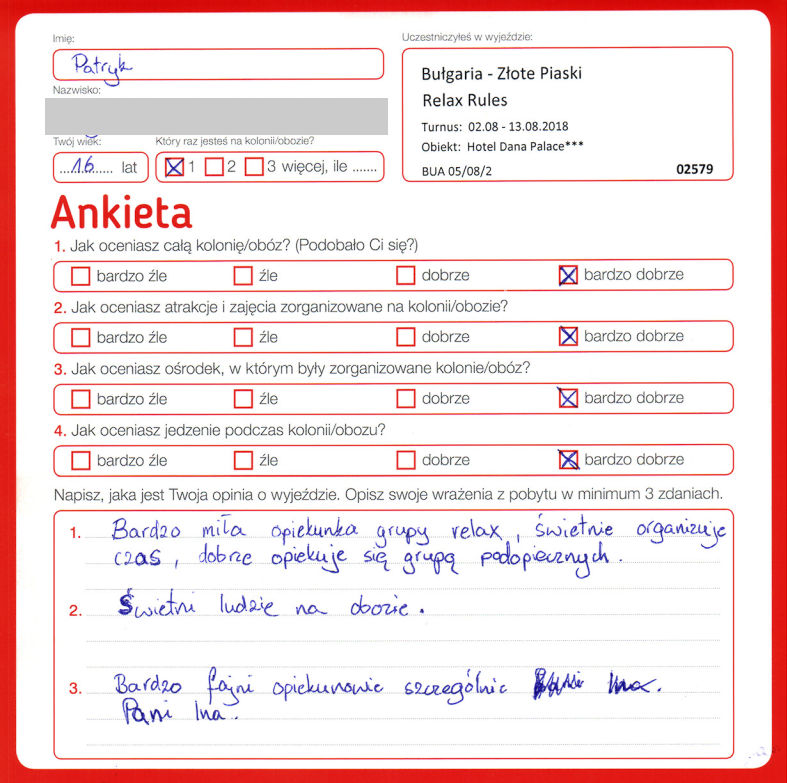 Imię:
Patryk
Nazwisko:
Twój wiek:
Który raz jesteś na kolonii/obozie?
16 lat
1 2 3 więcej, ile .......
Uczestniczyłeś w wyjeździe:
Bułgaria - Złote Piaski
Relax Rules
Turnus: 02.08 - 13.08.2018
Obiekt: Hotel Dana Palace***
BUA 05/08/2 02579
Ankieta
1. Jak oceniasz całą kolonię/obóz? (Podobało Ci się?)
bardzo źle źle dobrze bardzo dobrze
2. Jak oceniasz atrakcje i zajęcia zorganizowane na kolonii/obozie?
bardzo źle źle dobrze bardzo dobrze
3. Jak oceniasz ośrodek, w którym były zorganizowane kolonie/obóz?
bardzo źle źle dobrze bardzo dobrze
4. Jak oceniasz jedzenie podczas kolonii/obozu?
bardzo źle źle dobrze bardzo dobrze
Napisz, jaka jest Twoja opinia o wyjeździe. Opisz swoje wrażenia z pobytu w minimum 3 zdaniach.
1. Bardzo miła opiekunka grupy relax, świetnie organizuje
czas, dobrze opiekuje się grupą podopiecznych.
2. Świetni ludzie na obozie.
3. Bardzo fajni opiekunowie szczególnie
Pani Ina.